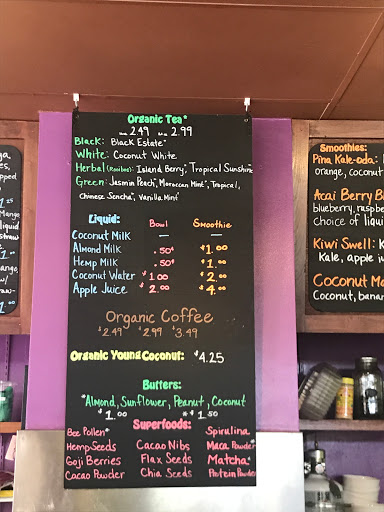 Organic Tea*
2.49 2.99
Black: Black Estate*
White: Coconut White
Herbal (Rooibos): Island Berry*, Tropical Sunshine
Green: Jasmin Peach*, Moroccan Mint*, Tropical,
Chinese Sencha*, Vanilla Mint*
Liquid: Bowl Smoothie
Coconut Milk — —
Almond Milk .50¢ $1.00
Hemp Milk .50¢ $1.00
Coconut Water $1.00 $2.00
Apple Juice $2.00 $4.00
Organic Coffee
$2.49 $2.99 $3.49
Organic Young Coconut: $4.25
Butters:
*Almond, Sunflower, Peanut, Coconut
$1.00 *$1.50
Superfoods:
Bee Pollen* Spirulina
Hemp Seeds Cacao Nibs Maca Powder*
Goji Berries Flax Seeds Matcha*
Cacao Powder Chia Seeds Protein Powder
Smoothies:
Pina Kale-ada:
orange, coconut
Acai Berry
blueberry,
choice of
Kiwi Swell:
Kale, apple
Coconut
Coconut,
Mango
liquid
straw